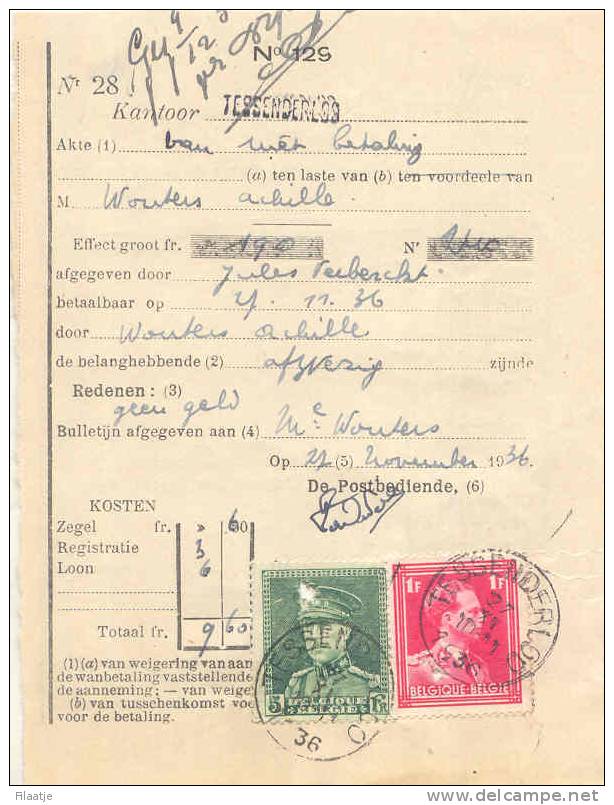 Nº 129
Nr 28
Kantoor TESSENDERLOO
Akte (1) van niet betaling
(a) ten laste van (b) ten voordeele van
M. Wouters achille
Effect groot fr. 190 Nr
afgegeven door Jules
betaalbaar op 27. 11. 36
door Wouters achille
de belanghebbende (2) afwezig zijnde
Redenen : (3)
geen geld
Bulletijn afgegeven aan (4) Me Wouters
Op 27 (5) november 1936.
De Postbediende, (6)
KOSTEN
Zegel fr. » 60
Registratie 3
Loon 6
Totaal fr. 9 60
(1) (a) van weigering van aan
de wanbetaling vaststellende
de aanneming; — van weige
(b) van tusschenkomst voe
voor de betaling.
5 Fr
BELGIQUE
BELGIE
TESSENDERLOO
36
1F 1F
BELGIQUE-BELGIE
TESSENDERLOO
27
XI
36
Filaatje
delcampe.net